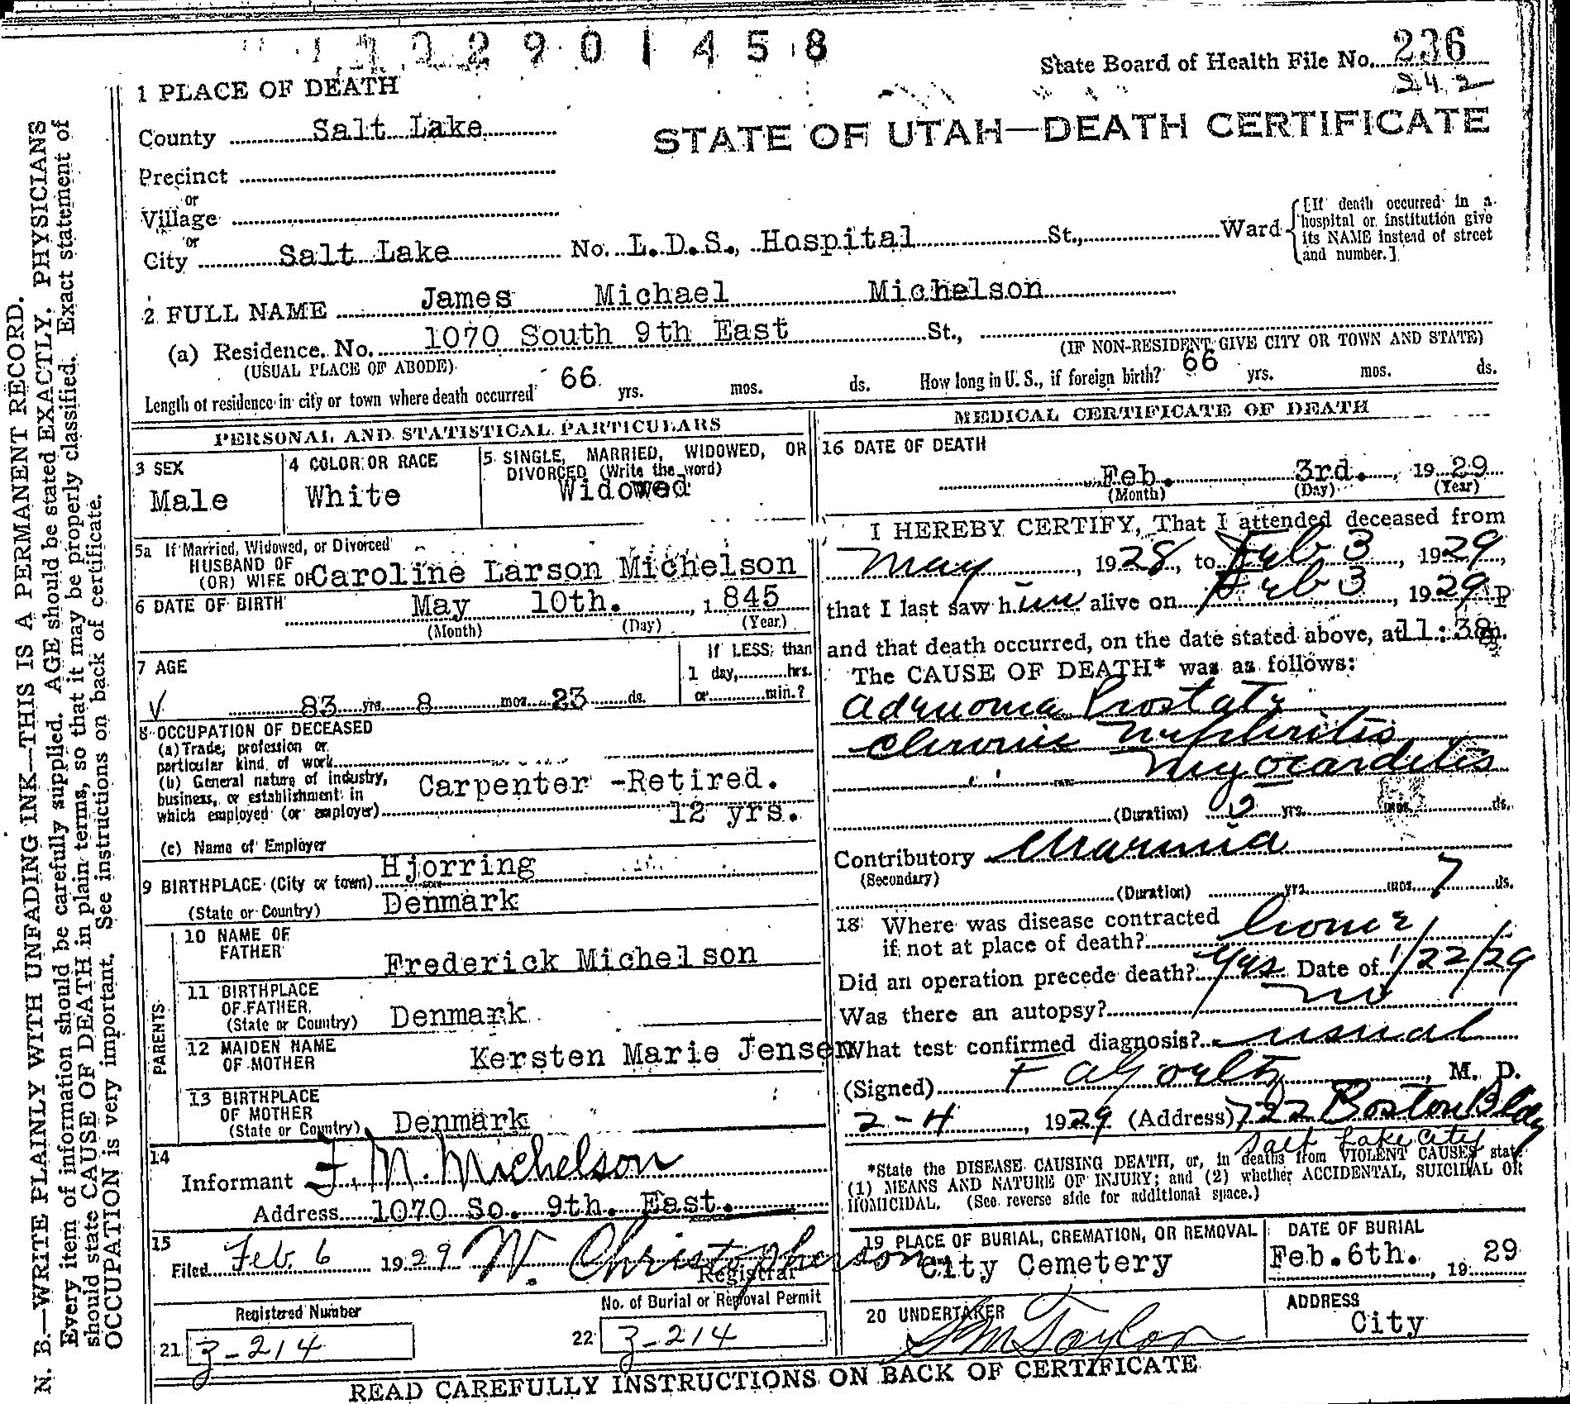 2901458
State Board of Health File No. 236
242
1 PLACE OF DEATH
STATE OF UTAH—DEATH CERTIFICATE
County Salt Lake
Precinct
or
Village
or
City Salt Lake No. L.D.S., Hospital St., Ward
[If death occurred in a
hospital or institution give
its NAME instead of street
and number.]
2 FULL NAME James Michael Michelson
(a) Residence. No. 1070 South 9th East St.,
(USUAL PLACE OF ABODE)
(IF NON-RESIDENT GIVE CITY OR TOWN AND STATE)
Length of residence in city or town where death occurred 66 yrs. mos. ds. How long in U. S., if foreign birth? 66 yrs. mos. ds.
PERSONAL AND STATISTICAL PARTICULARS
3 SEX
Male
4 COLOR OR RACE
White
5 SINGLE, MARRIED, WIDOWED, OR
DIVORCED (Write the word)
Widowed
5a If Married, Widowed, or Divorced
HUSBAND OF
(OR) WIFE OF Caroline Larson Michelson
6 DATE OF BIRTH May 10th. , 1845
(Month) (Day) (Year)
7 AGE
If LESS than
1 day, hrs.
or min.?
83 yrs. 8 mos. 23 ds.
8 OCCUPATION OF DECEASED
(a) Trade, profession or
particular kind of work
(b) General nature of industry,
business, or establishment in
which employed (or employer)
Carpenter -Retired.
12 yrs.
(c) Name of Employer
9 BIRTHPLACE (City or town) Hjorring
(State or Country) Denmark
PARENTS
10 NAME OF
FATHER Frederick Michelson
11 BIRTHPLACE
OF FATHER
(State or Country) Denmark
12 MAIDEN NAME
OF MOTHER Kersten Marie Jensen
13 BIRTHPLACE
OF MOTHER
(State or Country) Denmark
14
Informant F. M. Michelson
Address 1070 So. 9th. East.
15
Filed Feb. 6 1929 W. Christopherson
Registrar
Registered Number
21 3-214
No. of Burial or Removal Permit
22 3-214
MEDICAL CERTIFICATE OF DEATH
16 DATE OF DEATH
Feb. 3rd. , 1929
(Month) (Day) (Year)
I HEREBY CERTIFY, That I attended deceased from
May , 1928, to Feb 3 , 1929,
that I last saw him alive on Feb 3 , 1929 P
and that death occurred, on the date stated above, at 11:38 m.
The CAUSE OF DEATH* was as follows:
Adenoma Prostate
Chronic Nephritis
Myocarditis
(Duration) yrs. mos. ds.
Contributory Uraemia
(Secondary)
(Duration) yrs. mos. 7 ds.
18 Where was disease contracted
if not at place of death? home
Did an operation precede death? Yes Date of 1/22/29
Was there an autopsy? no
What test confirmed diagnosis? usual
(Signed) F A , M. D.
2-4 , 1929 (Address) 722 Boston Bldg
Salt Lake City
*State the DISEASE CAUSING DEATH, or, in deaths from VIOLENT CAUSES state
(1) MEANS AND NATURE OF INJURY; and (2) whether ACCIDENTAL, SUICIDAL OR
HOMICIDAL. (See reverse side for additional space.)
19 PLACE OF BURIAL, CREMATION, OR REMOVAL
City Cemetery
DATE OF BURIAL
Feb.6th. , 1929
20 UNDERTAKER
S M Taylor
ADDRESS
City
READ CAREFULLY INSTRUCTIONS ON BACK OF CERTIFICATE
N. B.—WRITE PLAINLY WITH UNFADING INK—THIS IS A PERMANENT RECORD.
Every item of information should be carefully supplied. AGE should be stated EXACTLY. PHYSICIANS
should state CAUSE OF DEATH in plain terms, so that it may be properly classified. Exact statement of
OCCUPATION is very important. See instructions on back of certificate.